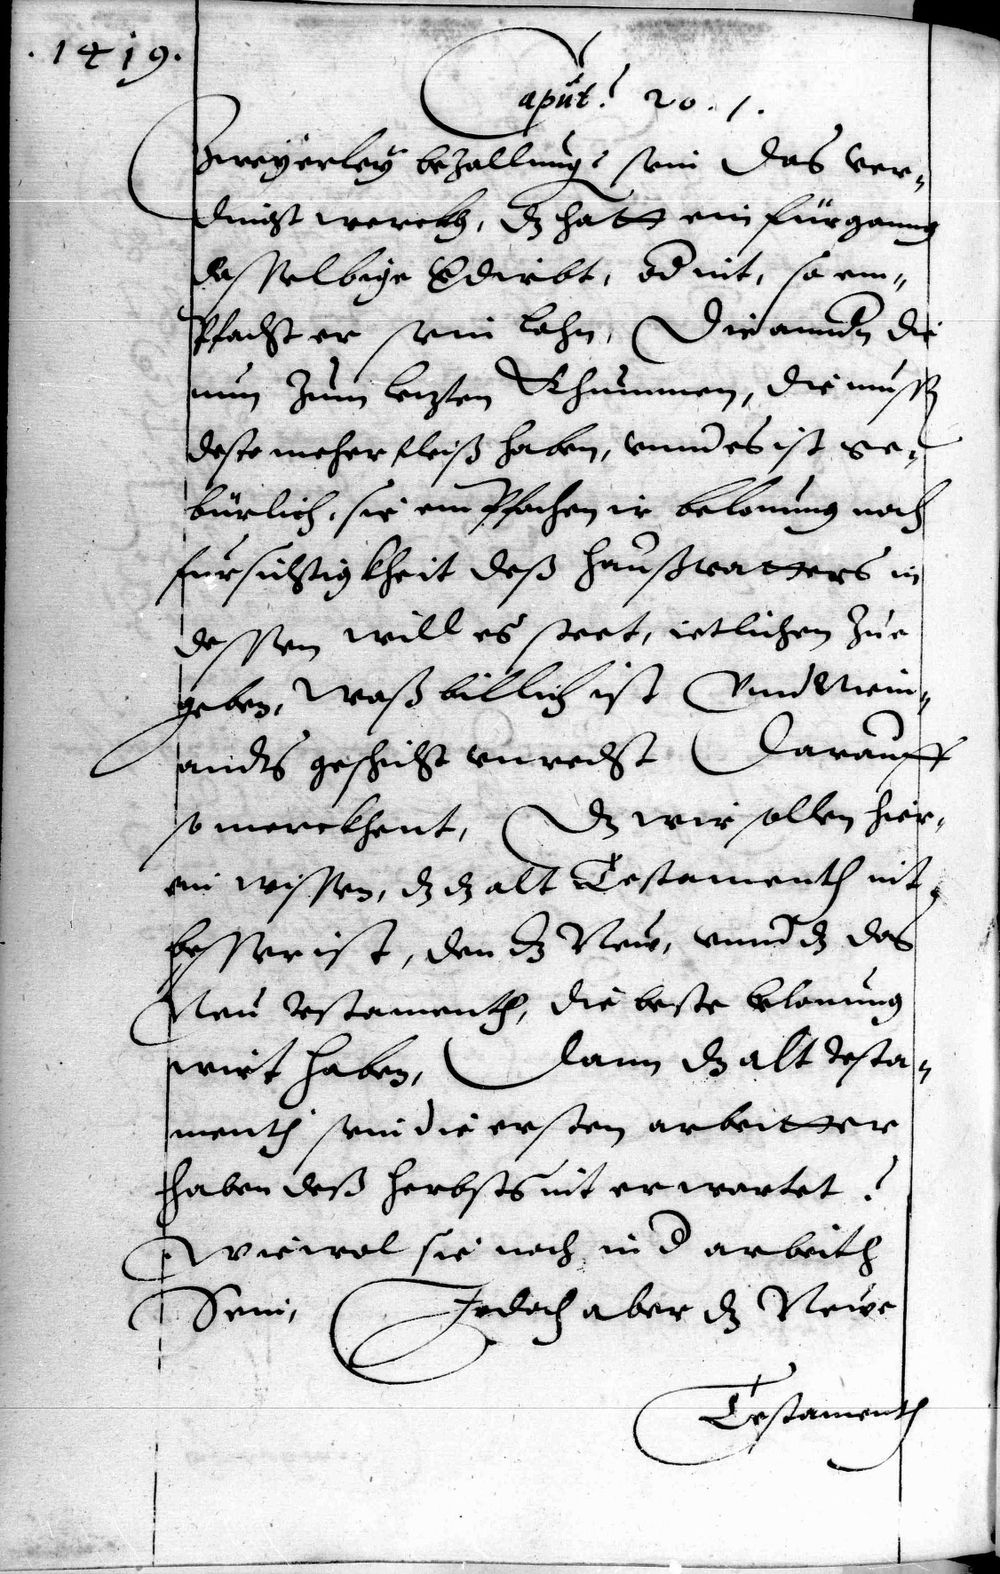 .1419.
Caput. 20. /.
Zweyerley bezallung sein das ver-
dingt werckh, dz hatt ein fürganng
dasselbige verdirbt, od nit, so em-
pfacht er sein lohn, Die annder die
nun zum lezten khummen, die muss
desto meher fleiß haben, vnnd es ist ge-
bürlich, sie empfachen ir belonung nach
fursichtigkheit deß haußvatters in
dessen will es steet, ietlichen zue
geben, waß billich ist Vnd Niem-
andts geschicht vnrecht Darauff
so merckhent, Dz wir sollen hier-
ein wissen, dz dz alt Testamenth nit
besser ist, den dz New, vnnd dz das
Neu testamenth, die beste belonung
wirt haben, Dann dz alt testa-
menth sein die ersten arbeitter
haben deß herbsts nit erwartet
Wiewol sie noch in d arbeith
Sein, Jedoch aber dz Newe
Testamenth